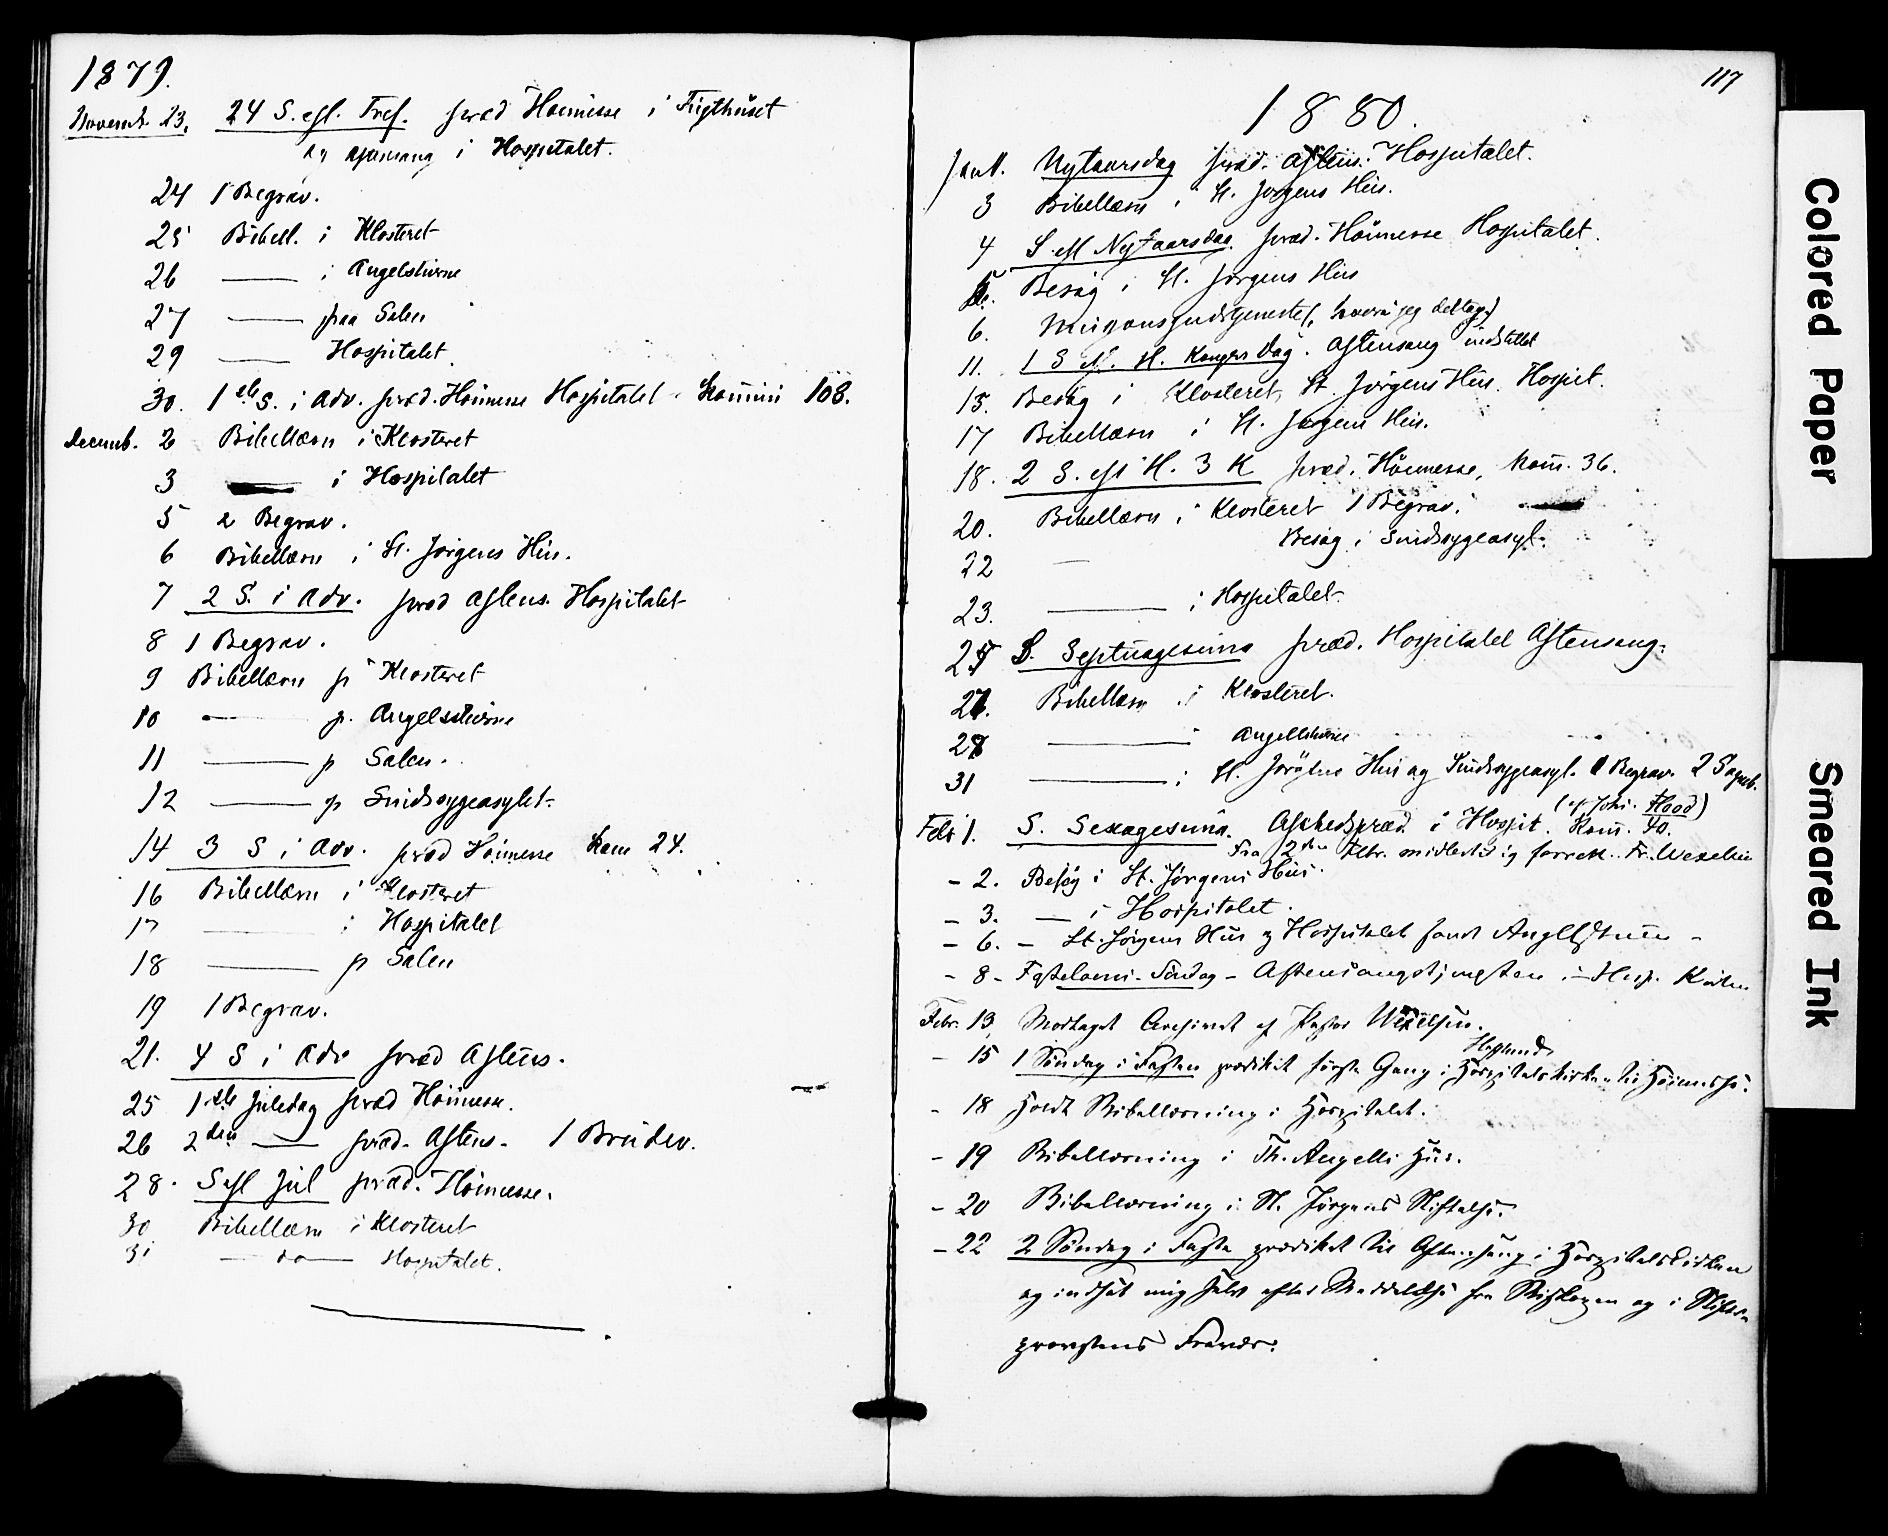 1879.
Novemb. 23. 24 S. efl. Tref. præd Høimesse i Tugthuset
og Aftensang i Hospitalet.
24 1 Begrav.
25 Bibell. i Klosteret
26 —— i Angelstuerne
27 —— paa Salen
29 —— Hospitalet
30. 1ste S. i Adv. præd. Høimesse Hospitalet. Komuni 108.
Decemb. 2 Bibellæsn i Klosteret
3 —— i Hospitalet
5 2 Begrav.
6 Bibellæsn i St. Jørgens Hus.
7 2 S. i Adv. præd Aftens. Hospitalet
8 1 Begrav.
9 Bibellæsn p Klosteret
10 —— p. Angelsstuerne
11 —— p Salen.
12 —— p Sindssygeasylet
14 3 S i Adv. præd Høimesse Kom 24.
16 Bibellæsn i Klosteret
17 —— i Hospitalet
18 —— p Salen
19 1 Begrav.
21. 4 S i Adv præd Aftens.
25 1ste Juledag præd Høimesse.
26 2den —— præd. Aftens. 1 Brudev.
28. S efl Jul præd. Høimesse.
30 Bibellæsn i Klosteret
31 — do — Hospitalet.
117
1880.
Jan 1. Nytaarsdag præd. Aftens. Hospitalet.
3 Bibellæsn i St. Jørgens Hus.
4 S. efl Nytaarsdag. præd. Høimesse Hospitalet.
5. Besøg i St. Jørgens Hus
6. Missionsgudstjeneste (, hvori jeg deltog.)
11. 1 S efl. H. Kongers Dag. Aftensang indstillet
15. Besøg i Klosteret, St. Jørgens Hus. Hospit.
17 Bibellæsn i St. Jørgens Hus.
18. 2 S. efl H. 3 K præd. Høimesse, Kom. 36.
20. Bibellæsn i Klosteret 1 Begrav.
22 — Besøg i Sindssygeasyl.
23. —— i Hospitalet.
25 S. Septuagesima præd. Hospitalet Aftensang.
27. Bibellæsn i Klosteret.
28 —— Angellstuerne
31 —— i St. Jørgens Hus og Sindssygeasyl. 1 Begrav. 2 Sogneb.
Feb 1. S. Sexagesima. Afskedspræd. i Hospit. Kom. 40.
Fra 2den Febr. midlertidig forrett. Fr. Wexelsen
- 2. Besøg i St. Jørgens Hus.
- 3. — i Hospitalet.
- 6. - St. Jørgens Hus og Hospitalet samt Angellstuen -
- 8 - Fastelavns-Søndag - Aftensangstjenesten i Hosp. Kirken
Febr. 13, Modtaget Archivet af Pastor Wexelsen.
Høglund
- 15 1 Søndag i Fasten prædiket første Gang i Hospitalskirken til Høimesse.
- 18 Holdt Bibellæsning i Hospitalet.
- 19 Bibellæsning i Th. Angells Hus.
- 20 Bibellæsning i St. Jørgens Stiftelse.
- 22 2 Søndag i Faste prædiket til Aftensang i Hospitalskirken
og indsat mig selv efter Meddelelse fra Biskopen og i Stifts-
provstens Fravær.
Colored Paper
Smeared Ink